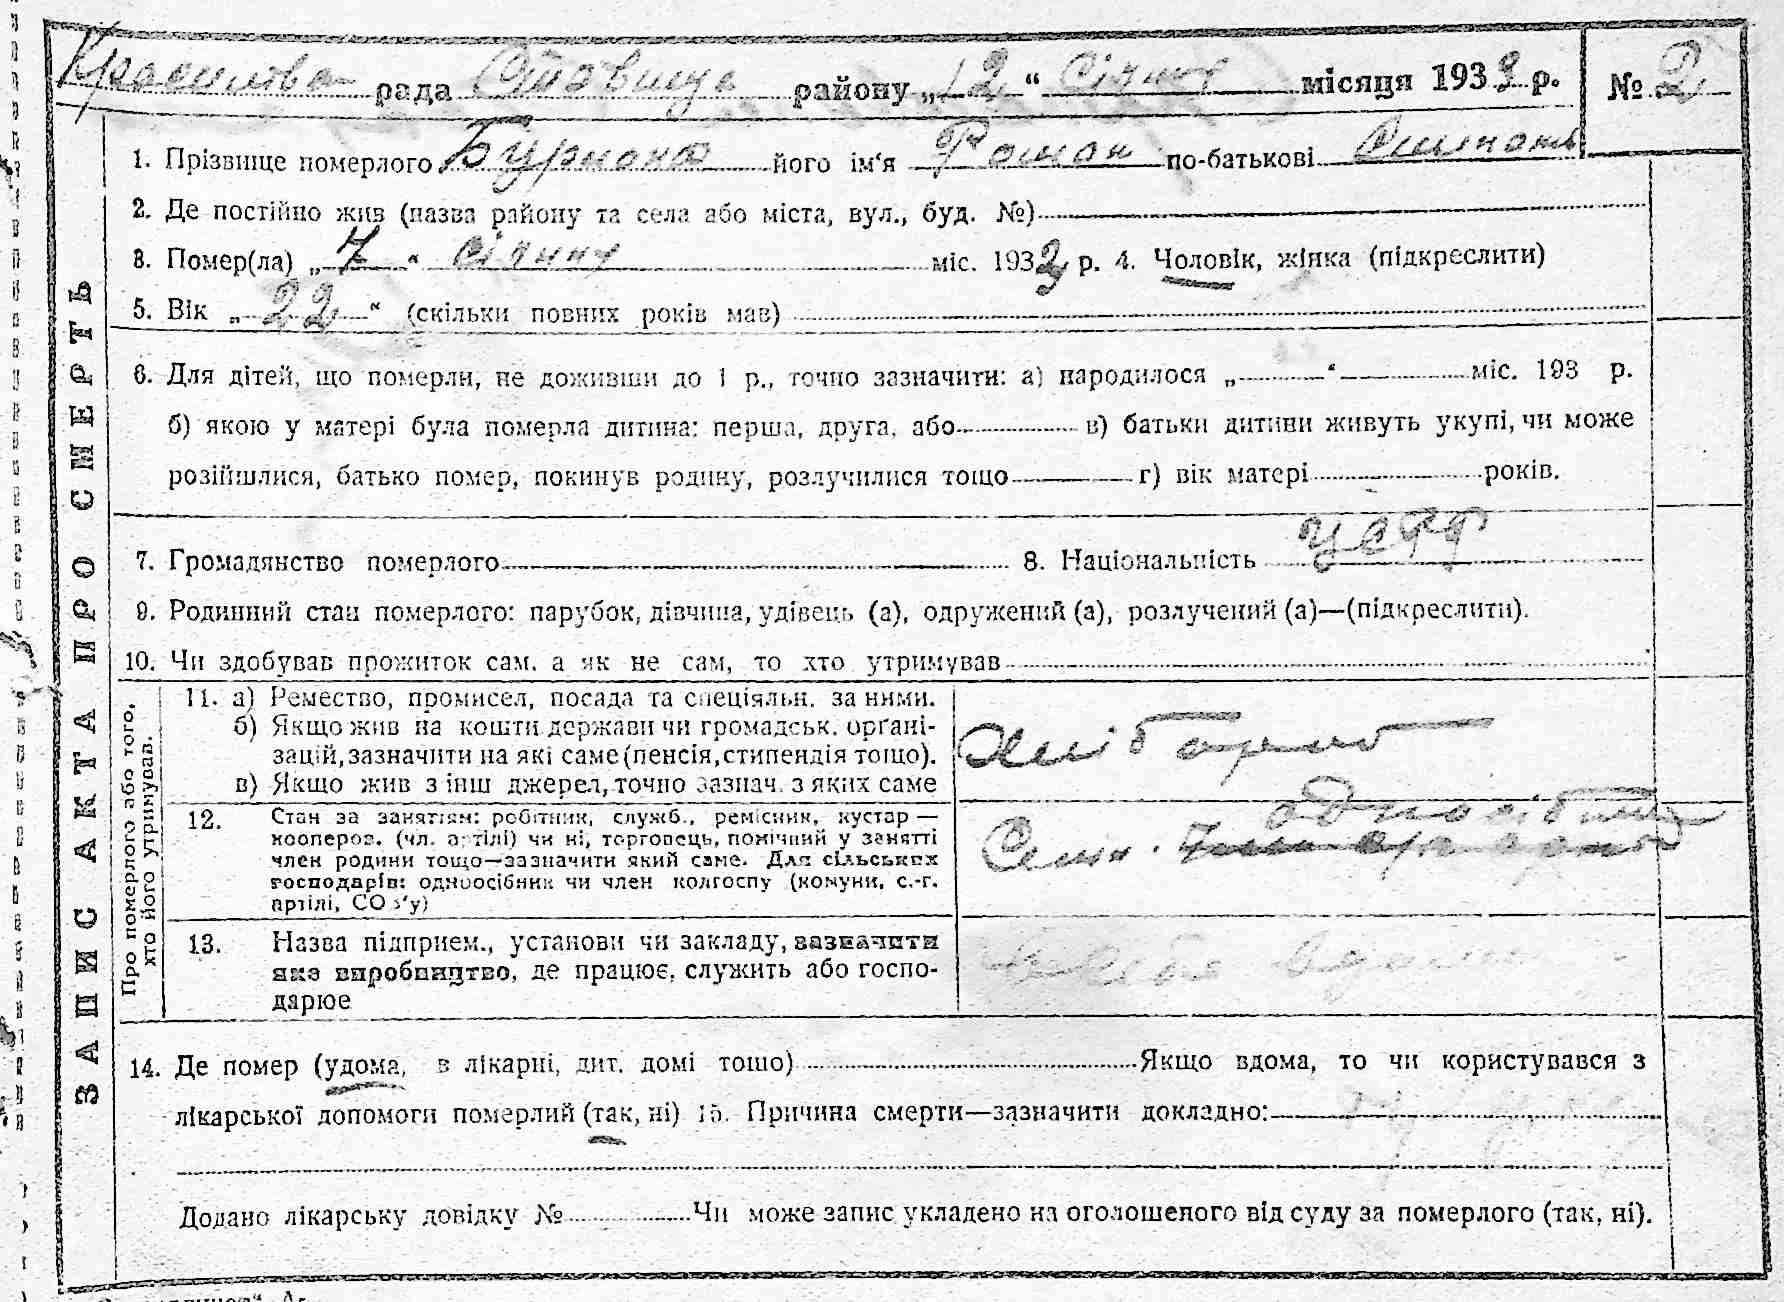 рада районо „12“ Січня місяця 1933 р. № 2
1. Прізвище померлого його ім‘я Роман по-батькові
2. Де постійно жив (назва району та села або міста, вул., буд. №)
3. Помер(ла) „7“ Січня міс. 1932 р. 4. Чоловік, жінка (підкреслити)
5. Вік „22“ (скільки повних років мав)
6. Для дітей, що померли, не доживши до 1 р., точно зазначити: а) народилося „ “ міс. 193 р.
б) якою у матері була померла дитина: перша, друга, або в) батьки дитини живуть укупі, чи може
розійшлися, батько помер, покинув родину, розлучилися тощо г) вік матері років.
7. Громадянство померлого 8. Національність УСРР
9. Родинний стан померлого: парубок, дівчина, удівець (а), одружений (а), розлучений (а)—(підкреслити).
10. Чи здобував прожиток сам. а як не сам, то хто утримував
ЗАПИС АКТА ПРО СМЕРТЬ
Про померлого або того,
хто його утримував.
11. а) Ремество, промисел, посада та спеціяльн. за ними.
б) Якщо жив на кошти держави чи громадськ. орґані-
зацій, зазначити на які саме (пенсія, стипендія тощо).
в) Якщо жив з інш джерел, точно зазнач. з яких саме
Хлібороб
12. Стан за заняттям: робітник, служб., ремісник, кустар —
кооперов. (чл. артілі) чи ні, торговець, помічний у занятті
член родини тощо—зазначити який саме. Для сільських
господарів: одноосібник чи член колгоспу (комуни, с.-г.
артілі, СОЗ‘у)
одноосібник
Селян.
13. Назва підприєм., установи чи закладу, зазначити
яке виробництво, де працює, служить або госпо-
дарює
14. Де помер (удома, в лікарні, дит. домі тощо) Якщо вдома, то чи користувався з
лікарської допомоги померлий (так, ні) 15. Причина смерти—зазначити докладно:
Додано лікарську довідку № Чи може запис укладено на оголошеного від суду за померлого (так, ні).